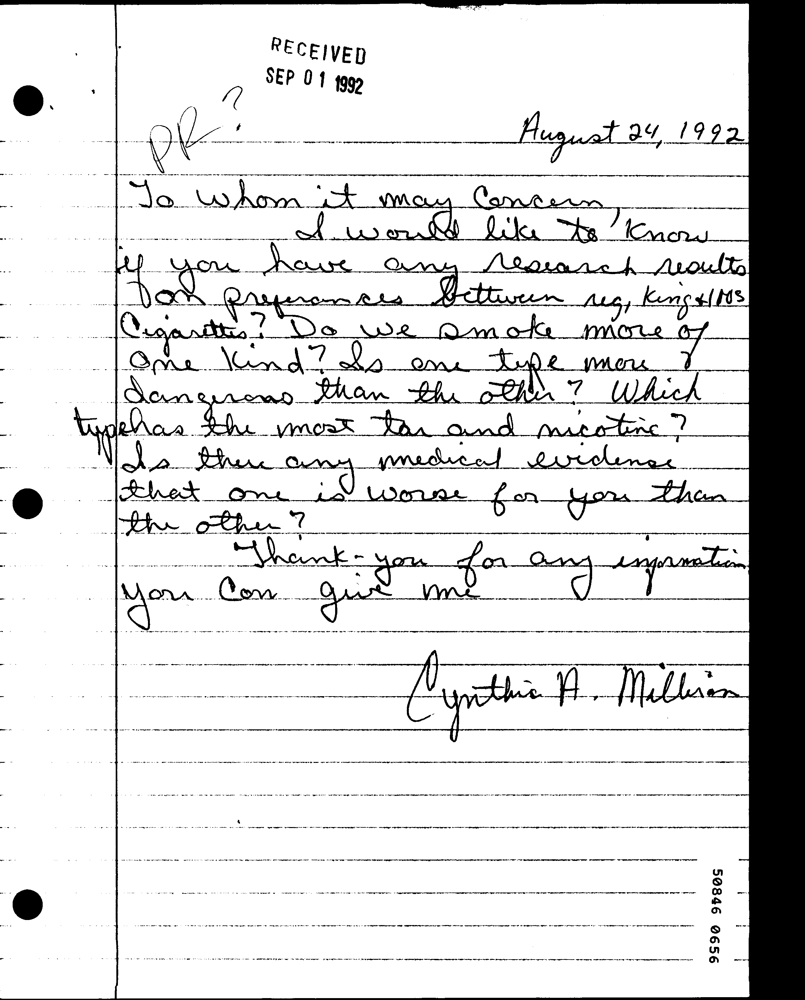 RECEIVED
SEP 01 1992
PR?
August 24, 1992
To Whom it may Concern,
I would like to know
if you have any research results
on preferances bettween reg, King & 100s
Cigarettes? Do we smoke more of
one kind? Is one type more
dangerous than the other? Which
type has the most tar and nicotine?
Is there any medical evidense
that one is worse for you than
the other?
Thank-you for any information
you can give me
Cynthia A.
50846 0656